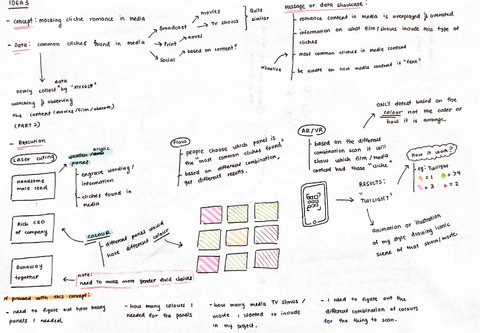 IDEA 3
- Concept: mocking cliche romance in media
- Data: common cliches found in media
Broadcast
movies
TV shows
Quite
similar
Print
novel
Social
based on content?
Message or data showcase:
- romance content in media is overplayed & overrated
- information on what film/shows include this type of
cliches
- most common cliches in media content
- be aware on how media content is "fake"
data
by "MYSELF"
watching & observing
the content (movies/film/above)
(PART 2)
- Execution
Laser cutting
acrylic
panel
- engrave wording/
information
- cliches found in
media
Handsome
male lead
Rich CEO
of company
Runaway
together
COLOUR
different panel would
have different colour
note:
need to make more gender divide cliches
How
- people choose which panel is
the "most common cliches found"
- based on different combination,
get different results.
AR/VR
ONLY detect based on the
colour not the order or
how it is arrange.
- based on the different
combination scan it will
show which film/media
content had those "cliche"
How it work?
- eg: Twilight
= 1
= 3
= 2
RESULTS:
"TWILIGHT"
animation or illustration
of my style drawing iconic
scene of that show/movie.
If proceed with this concept:
- need to figure out how many
panels I needed.
- how many colours I
needed for the panels
- how many media TV shows/
movie I wanted to include
in my project.
- I need to figure out the
different combination of colours
for the thing to scan.